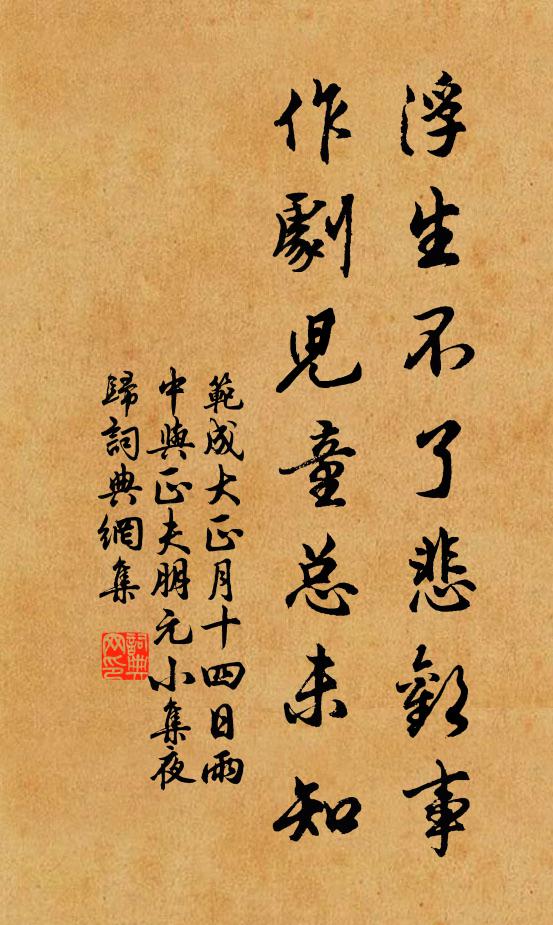 浮生不了悲歡事
作劇兒童总未知
範成大正月十四日雨
中與正夫朋元小集夜
歸詞典網集
詞典网印